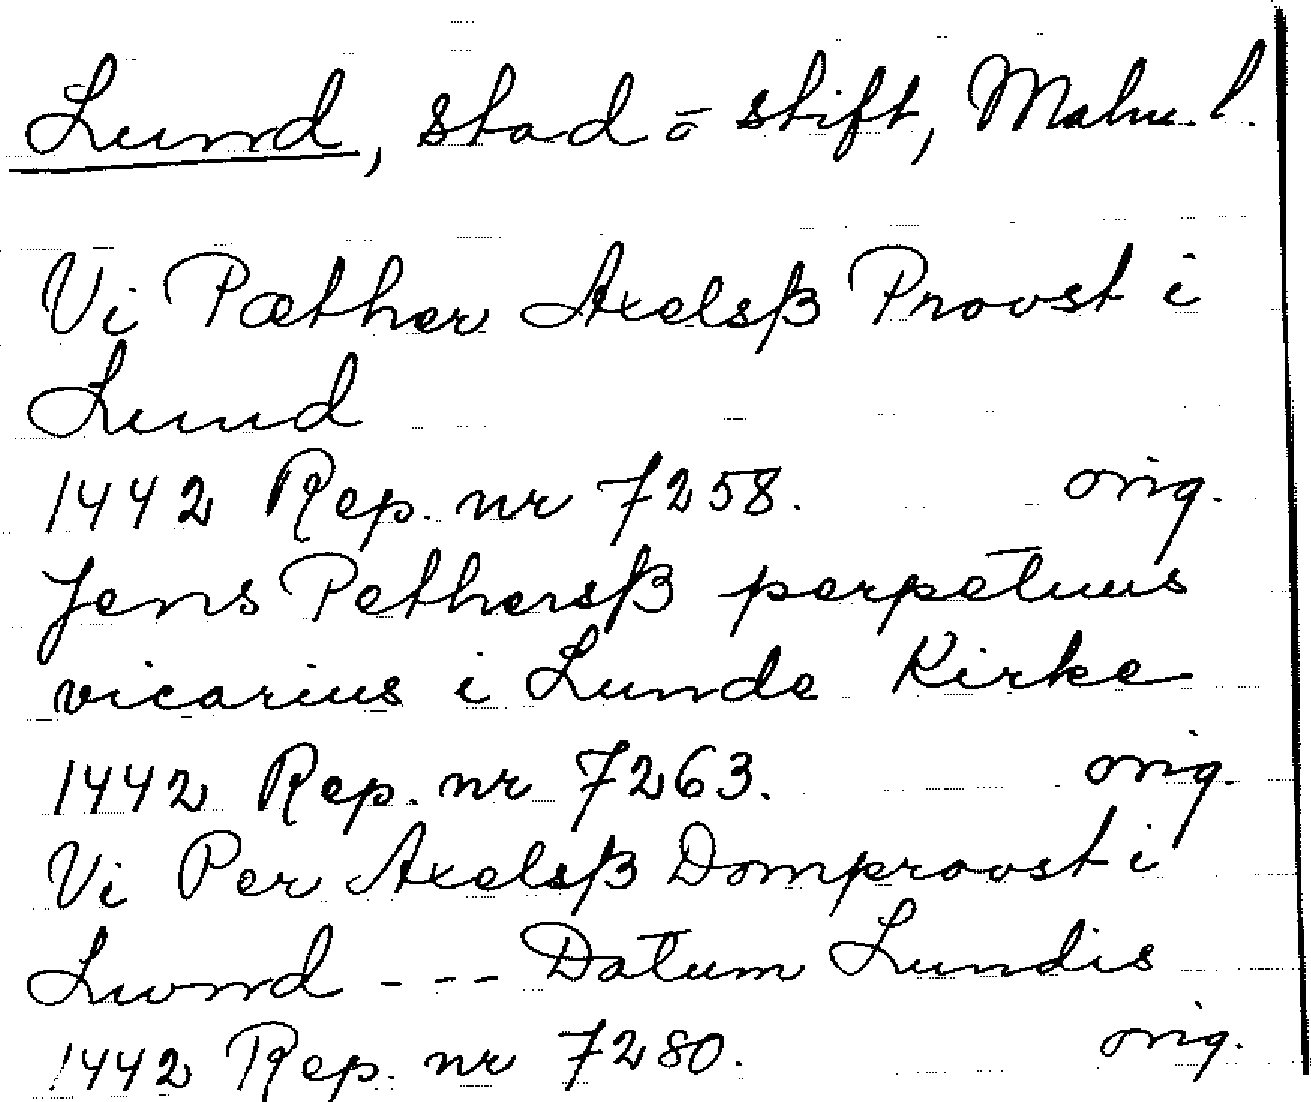 Lund, stad o stift, Malm. l.
Vi Pæther Axelsß Provst i
Lund
1442 Rep. nr 7258. orig.
Jens Pethersß perpetuus
vicarius i Lunde Kirke
1442 Rep. nr 7263. orig.
Vi Per Axelsß Domproost i
Lwnd --- Datum Lundis
1442 Rep. nr 7280. orig.